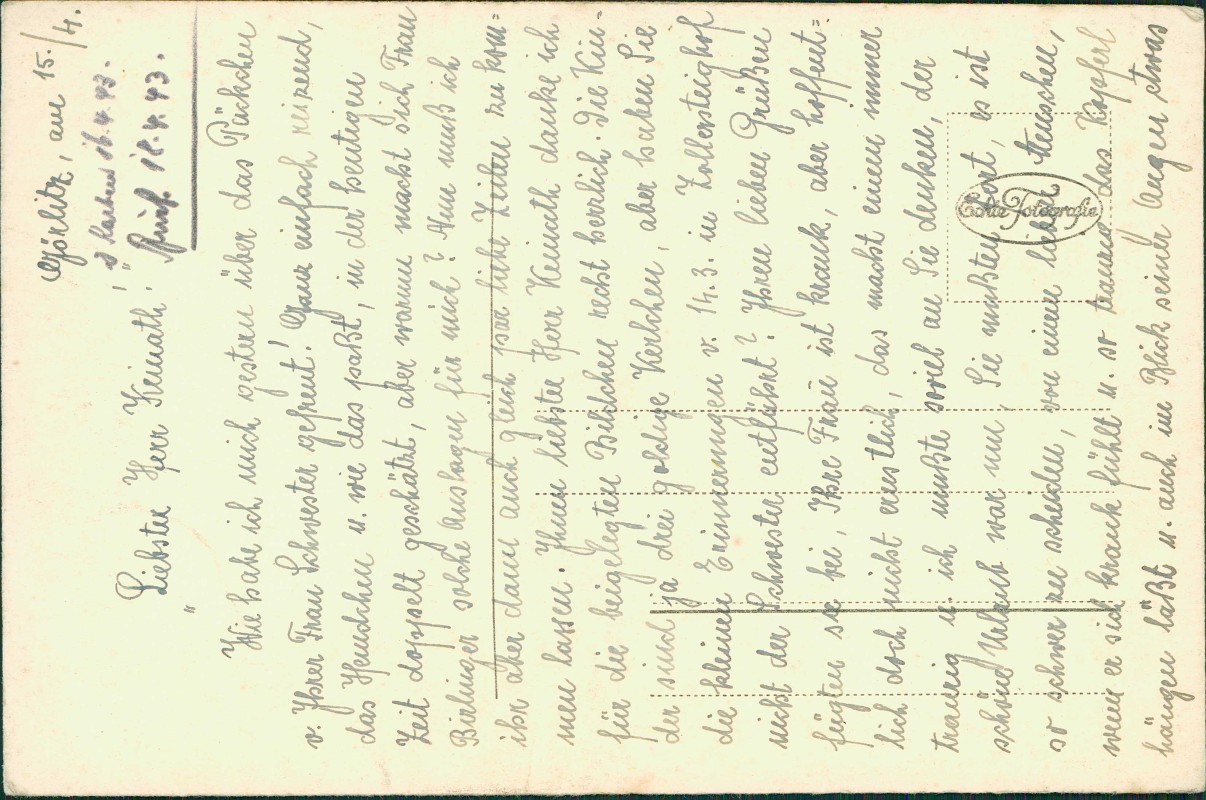 Görlitz, am 15./4.
18.4.43.
18.4.43.
"Liebster Herr Keinath!"
Wie habe ich mich gestern über das Päckchen
v. Ihrer Frau Schwester gefreut! Ganz einfach reizend,
das Hemdchen u. wie das paßt, in der heutigen
Zeit doppelt geschätzt, aber warum macht sich Frau
Bielinger solche Auslagen für mich? Nun muß ich
ihr aber dann auch gleich paar liebe Zeilen zu kom=
men lassen. Ihnen liebster Herr Keinath danke ich
für die beigelegten Bildchen recht herzlich. Die Kin=
der sind ja drei goldige Kerlchen, aber haben Sie
die kleinen Erinnerungen v. 14.3. in Zollersteighof
nicht der Schwester entführt? Ihren lieben Grüßen
fügten sie bei, Ihre Frau ist krank, aber hoffent=
lich doch nicht ernstlich, das macht einen immer
traurig u. ich mußte soviel an Sie denken, der
schöne Urlaub war um, Sie mußten fort, es ist
so schwer zu scheiden, von einem lieben Menschen,
wenn er sich krank fühlt u. so traurig das Kopferl
hängen läßt u. auch im Blick seiner Augen etwas
Echte Fotografie